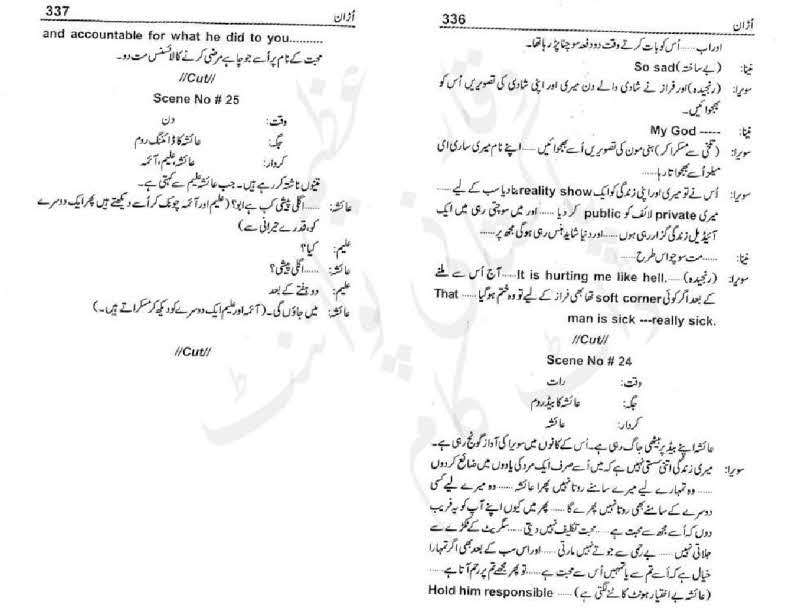 336
اُڑان
اور اب ...... اُس کو بات کرتے وقت دو دفعہ سوچنا پڑ رہا تھا۔
نینا: (بے ساختہ) So sad
سویرا: (رنجیدہ) اور فراز نے شادی والے دن میری اور اپنی شادی کی تصویریں اُس کو
بھجوائیں۔
نینا: My God -----
سویرا: (تلخی سے مسکرا کر) ہنی مون کی تصویریں اُسے بھجوائیں ...... اپنے نام میری ساری ای
میلز اُسے بھجواتا رہا......
سویرا: اُس نے تو میری اور اپنی زندگی کو ایک reality show بنا دیا سب کے لیے ......
میری private لائف کو public کر دیا ...... اور میں سوچتی رہی میں ایک
آئیڈیل زندگی گزار رہی ہوں ...... اور دنیا شاید ہنس رہی ہو گی مجھ پر ......
نینا: ...... مت سوچو اس طرح ......
سویرا: (رنجیدہ) It is hurting me like hell...... آج اُس سے ملنے
کے بعد اگر کوئی soft corner تھا بھی فراز کے لیے تو وہ ختم ہو گیا ...... That
man is sick ---really sick.
//Cut//
Scene No # 24
وقت: رات
جگہ: عائشہ کا بیڈ روم
کردار: عائشہ
عائشہ اپنے بیڈ پر بیٹھی جاگ رہی ہے۔ اُس کے کانوں میں سویرا کی آواز گونج رہی ہے۔
سویرا: میری زندگی اتنی سستی نہیں ہے کہ میں اُسے صرف ایک مرد کی یادوں میں ضائع کر دوں
...... وہ تمہارے لیے میرے سامنے روتا نہیں پھرا عائشہ ...... وہ میرے لیے کسی
دوسرے کے سامنے بھی روتا نہیں پھرے گا ...... پھر میں کیوں اپنے آپ کو یہ فریب
دوں کہ اُسے مجھ سے محبت ہے ...... محبت تکلیف نہیں دیتی ...... سگریٹ کے ٹکڑے سے
جلاتی نہیں ...... بے رحمی سے جوتے نہیں مارتی ...... اور اس سب کے بعد بھی اگر تمہارا
خیال ہے کہ اُسے تم سے یا تمہیں اُس سے محبت ہے ...... تو پھر مجھے تم پر رحم آتا ہے ......
(عائشہ بے اختیار ہونٹ کاٹنے لگتی ہے) ...... Hold him responsible
337
اُڑان
and accountable for what he did to you..........
محبت کے نام پر اُسے جو چاہے مرضی کرنے کا لائسنس مت دو۔
//Cut//
Scene No # 25
وقت: دن
جگہ: عائشہ کا ڈائننگ روم
کردار: عائشہ، علیم، آئمہ
تینوں ناشتہ کر رہے ہیں۔ جب عائشہ علیم سے کہتی ہے۔
عائشہ: ...... اگلی پیشی کب ہے ابو؟ (علیم اور آئمہ چونک کر اُسے دیکھتے ہیں پھر ایک دوسرے
کو، قدرے حیرانی سے)
علیم: کیا؟
عائشہ: ...... اگلی پیشی؟
علیم: دو ہفتے کے بعد
عائشہ: میں جاؤں گی۔ (آئمہ اور علیم ایک دوسرے کو دیکھ کر مسکراتے ہیں۔)
//Cut//